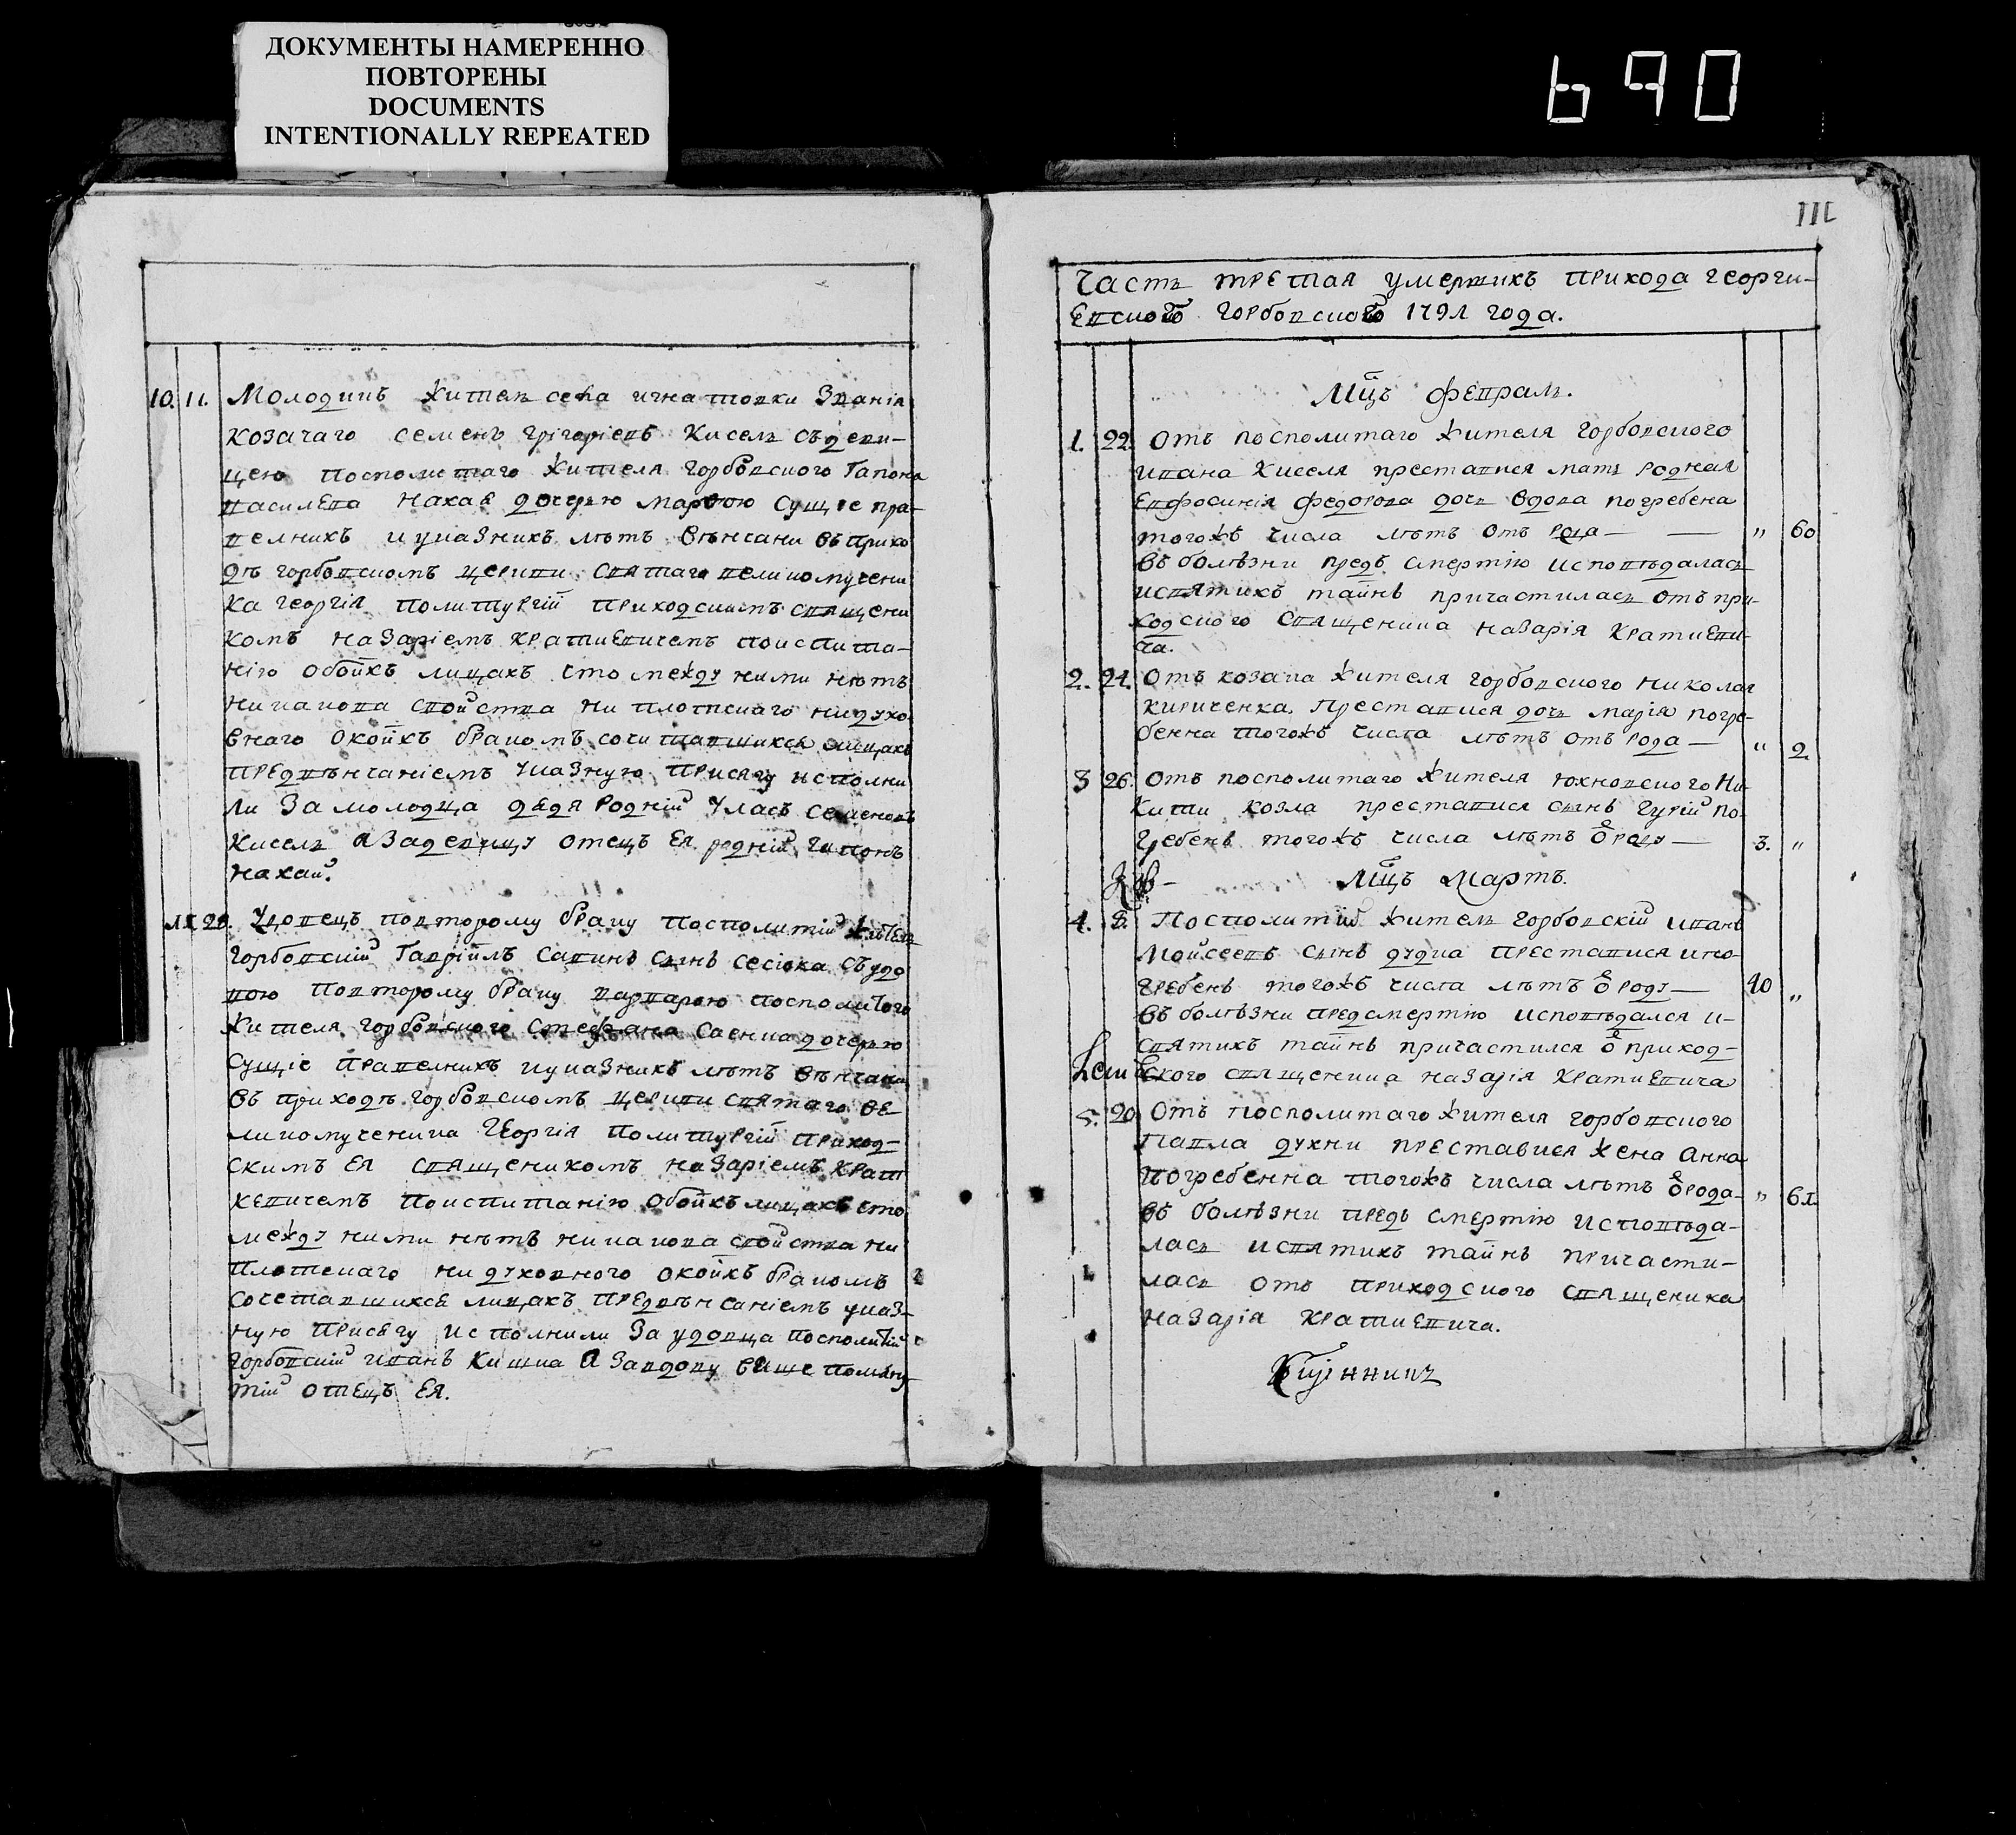 ДОКУМЕНТЫ НАМЕРЕННО
ПОВТОРЕНЫ
DOCUMENTS
INTENTIONALLY REPEATED
690
10. 11. Молодикъ жителъ села игнатовки званія
козачаго семенъ григоріевъ Киселъ съдеви-
цею посполитаго жителя горбовского Гапона
василева Нахая дочерью марѳою сущіе пра-
велникъ иуказникъ лѣтъ вѣнчани въприхо
дѣ горбовскомъ церкви святаго великомучени
ка георгія политургій приходскимъ священи
комъ назаріемъ кратиевичемъ поиспита-
нію обойхъ лицахъ что между ними нѣтъ
никакова свойства ни плотскаго нидухо
внаго окойхъ бракомъ сочитавшихся лицахъ
предвѣнчаніемъ указную присягу исполни
ли за молодца дядя родній улась семеновъ
Киселъ азадевицу отецъ ея родній гапонъ
нахай.
20. Удовецъ повторому браку посполитій жителъ
горбовскій Гаврійлъ савинъ синъ сесюка съудо
вою повторому браку варварою посполитого
жителя горбовского стефана саенка дочерью
сущіе правелникъ иуказникъ лѣтъ вѣнчани
въ приходѣ горбовскомъ церкви святаго ве
ликомученика Георгія политургій приход-
скимъ ея священикомъ назаріемъ крат
кевичемъ поиспитанію обойхъ лицахъ что
между ними нѣтъ никакова свойства ни
плотскаго ни духовного окойхъ бракомъ
сочетавшихся лицахъ предвѣнчаніемъ указ-
ную присягу исполнили за удовца посполитій
горбовскій иванъ Кишка а завдову више помяну-
тій отецъ ея.
Часть третая умершихъ прихода георги-
евского горбовского 1791 года.
Мцъ февралъ.
1. 22. Отъ посполитаго жителя горбовского
ивана Киселя преставися мать родная
Евфросинія федорова дочь вдова погребена
тогожъ числа лѣтъ отъ рода — — " 60
въ болѣзни предъ смертію исповѣдаласъ
исвятихъ тайнъ причастиласъ отъ при-
ходского священика назарія кратиеви-
ча.
2. 24. Отъ козака жителя горбовского николая
кириченка преставися дочъ марія погре-
бенна тогожъ числа лѣтъ отъ рода — " 2
3 26. Отъ посполитаго жителя юхновского Ни-
кити козла преставися сынъ гурій по-
гребенъ тогожъ числа лѣтъ ѿ роду — 3. "
Мцъ мартъ.
4. 8. Посполитій жителъ горбовскій иванъ
мойсеевъ сынъ дудка преставися ипо-
гребенъ тогожъ числа лѣтъ ѿ роду — 40 "
въ болѣзни предсмертію исповѣдался и-
святихъ тайнъ причастился ѿ приход-
ского священика назарія кратиевича
5. 20 Отъ посполитаго жителя горбовского
Павла духни преставися жена анна
погребенна тогожъ числа лѣтъ ѿ рода- "
въ болѣзни предъ смертію исповѣда-
ласъ исвятихъ тайнъ причасти-
ласъ отъ приходского священика
назарія кратиевича.